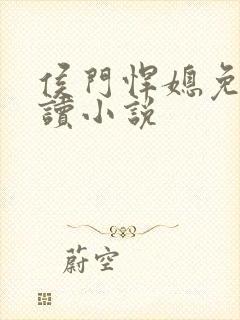 侯門悍媳免
讀小説
蔚空